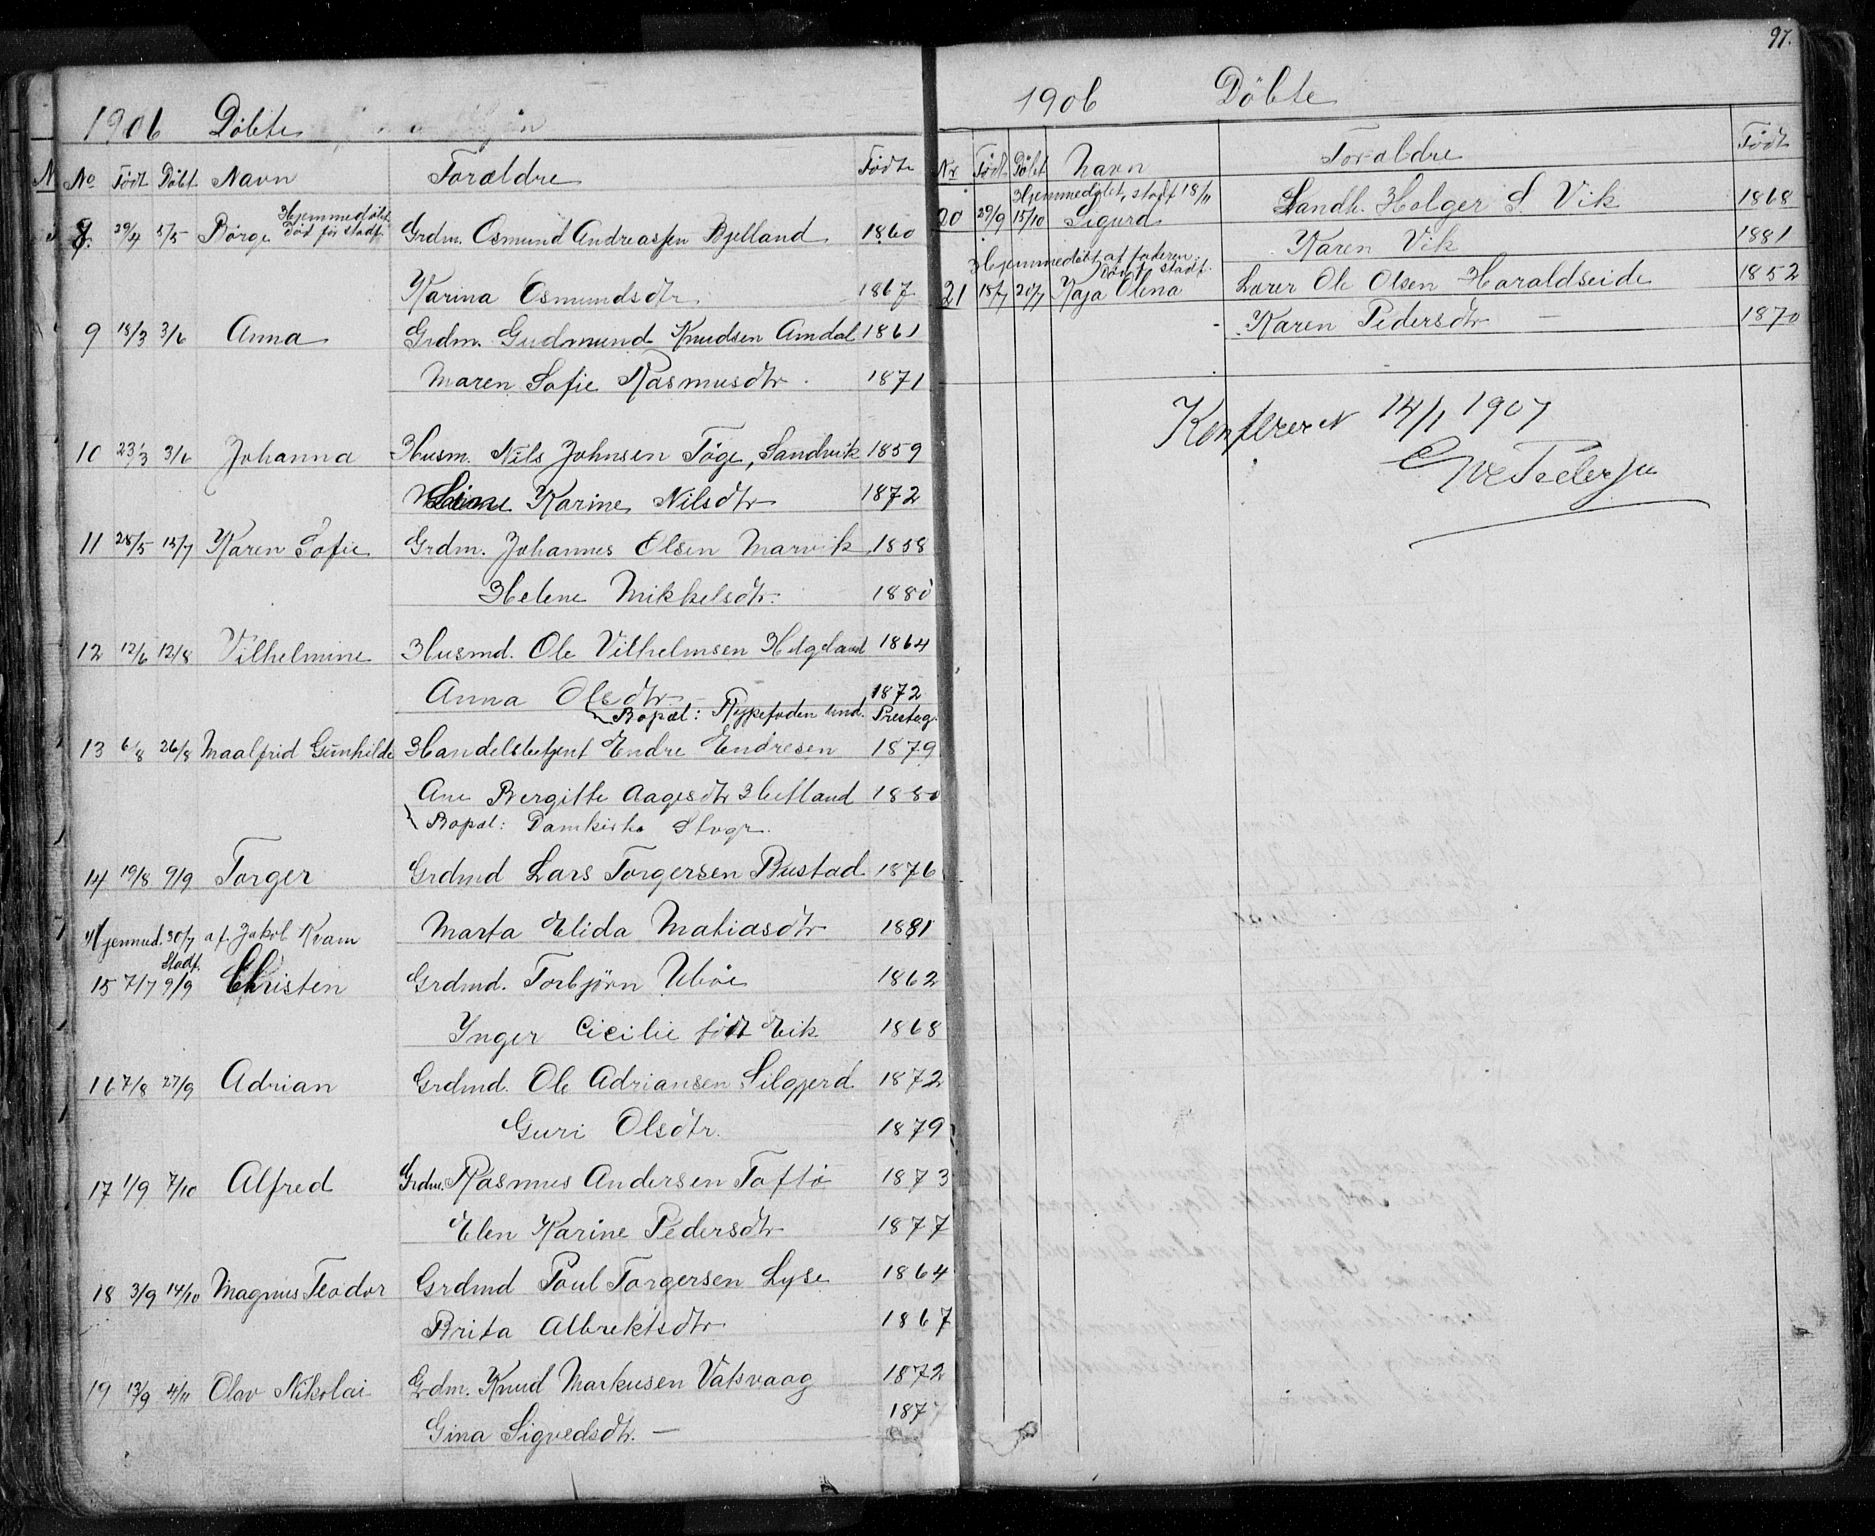 1906 Döbte
No Födt Döbt Navn Forældre Födte
8. 29/4 5/5 Börge Hjemmedöbt Död för stadf. Grdm. Osmund Andreassen Bjelland 1860
Karina Osmundsdtr 1867
9 18/3 3/6 Anna Grdm. Gudmund Knudsen Amdal 1861
Maren Sofie Rasmusdtr. 1871
10 23/3 3/6 Johanna Husm. Nils Johnsen Töge, Sandvik 1859
Karine Nilsdtr 1872
11 28/5 15/7 Karen Sofie Grdm. Johannes Olsen Marvik 1858
Helene Mikkelsdtr. 1880
12 12/6 12/8 Vilhelmine Husmd. Ole Vilhelmsen Helgeland 1864
Anna Olsdtr 1872
Bopæl: Rypefoden und. Presteg.
13 6/8 26/8 Maalfrid Gunhilde Handelsbetjent Endre Endresen 1879
Ane Bergitte Aagesdtr Hetland 1880
Bopæl: Domkirke Stvgr.
14 19/8 9/9 Torger Grdmd Lars Torgersen Bustad 1876
Hjemmed. 30/7 af Jakob Kvam Marta Elida Matiasdtr 1881
Stadf.
15 7/7 9/9 Christen Grdmd. Torbjörn Uböe 1862
Inger Cicilie födt Eik 1868
16 7/8 27/9 Adrian Grdmd. Ole Adriansen Silgjerd 1872
Guri Olsdtr. 1879
17 1/9 7/10 Alfred Grdm. Rasmus Andersen Toftö 1873
Elen Karine Pedersdtr 1877
18 3/9 14/10 Magnus Teodor Grdmd Poul Torgersen Lyse 1864
Brita Albrektsdtr 1867
19 13/9 4/11 Olav Nikolai Grdm. Knud Markusen Vatsvaag 1872
Gina Sigvedsdtr. — 1877
97.
1906 Döbte
Nr Födt Döbt Navn Forældre Födt
Hjemmedöbt, stadf 18/11
20 29/9 15/10 Sigurd Landh. Holger S. Vik 1868
Karen Vik 1881
Hjemmedöbt af faderen.
stadf.
21 18/7 20/7 Kaja Olena Lærer Ole Olsen Haraldseide 1852
Karen Pedersdtr — 1870
Konfereret 14/1 1907